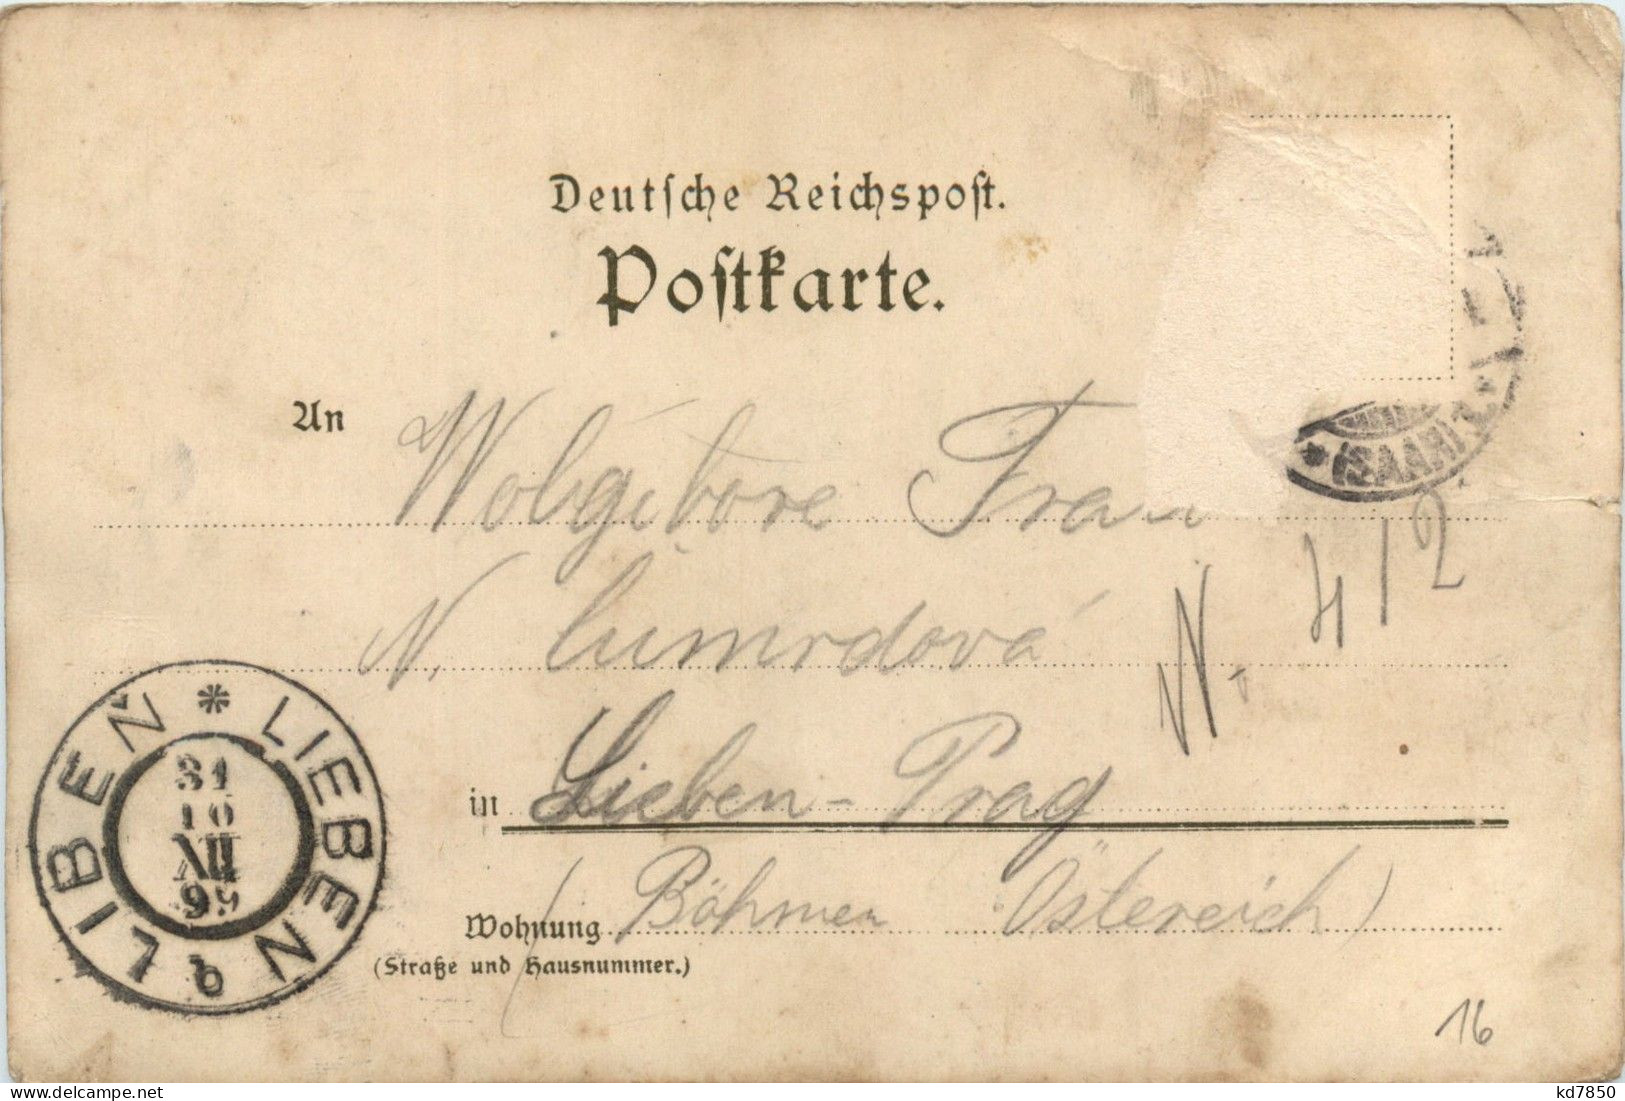 Deutsche Reichspost.
Postkarte.
An Wolgibore Frau
N. Cumrdová
N. 412
in Lieben - Prag
Wohnung (Böhmen Östereich)
(Straße und Hausnummer.)
LIBEŇ * LIEBEN
31
10
XII
99
b
* (SAAR)
16
kd7850